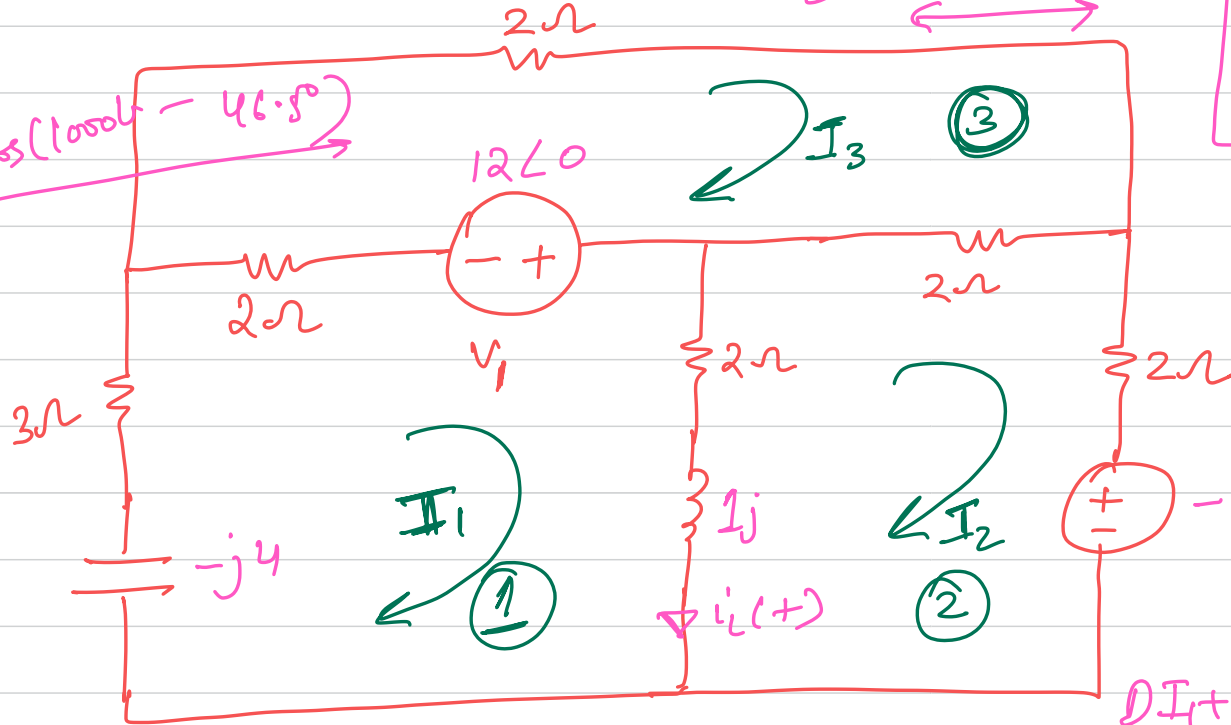 2Ω
os(1000t - 46.8°)
12∠0
I3
3
- +
2Ω
2Ω
V1
2Ω
2Ω
3Ω
I1
1j
I2
+
-
-
-j4
1
iL(t)
2
DI1+